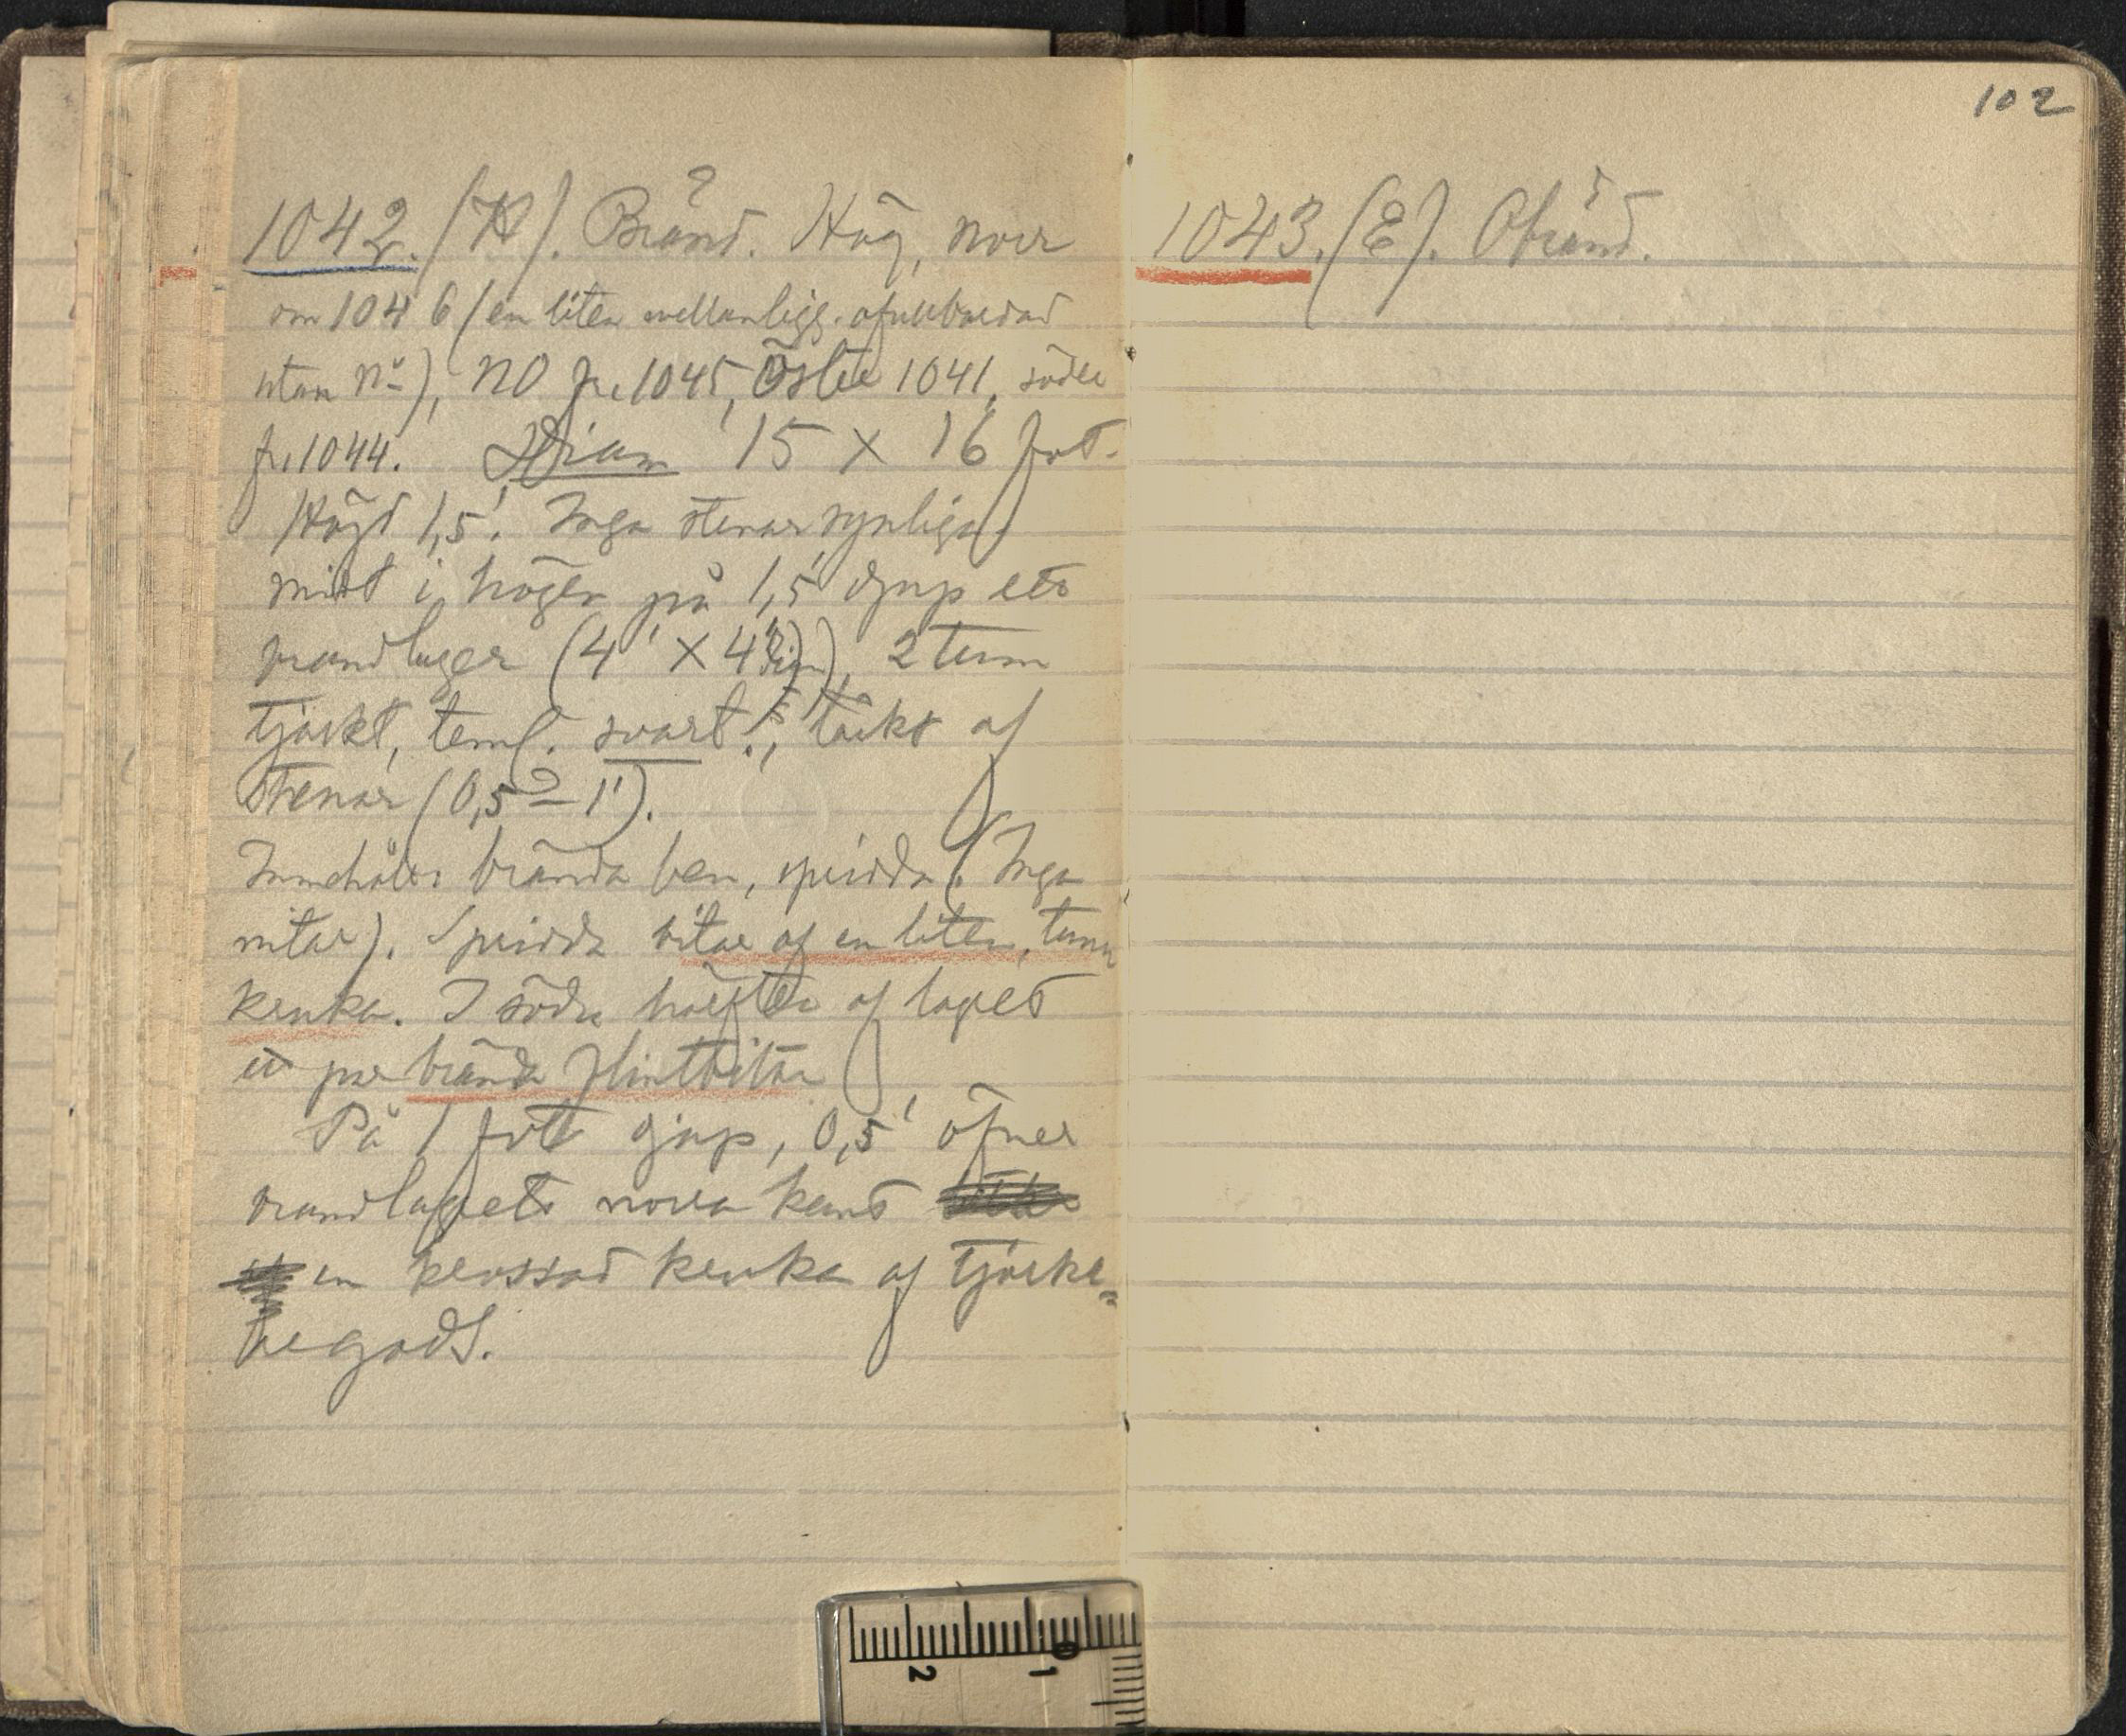 1042. (H). Bränd. Hög, norr
om 1046 (en liten mellanligg.
utan No), NO fr. 1045, Öster 1041, söder
fr. 1044. Diam 15 x 16 fot.
Höjd 1,5'. Inga stenar synliga.
midt i högen på 1,5' djup ett
brandlager (4' x 4'), 2 tum
tjockt, teml. svart, täckt af
stenar (0,5 - 1').
Innehåller brända ben, spridda (Inga
nitar). Spridda bitar af en liten, tunn
kruka. I södra hälften af lagret
ett par brända flintbitar
På 1 fot djup, 0,5' öfver
brandlagrets norra kant
en krossad kruka af tjocka-
re gods.
102
1043. (E). Obränd.
2 1 0